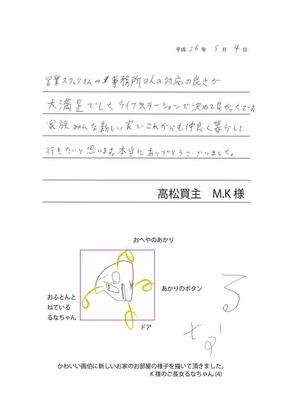 平成 26年 5月 4日
営業スタッフさんの事務所の人の対応の良さが
大満足でした。ライフステーションで決めて良かったです。
家族みんな新しい家でこれからも仲良く暮らして
行きたいと思います。本当にありがとうございました。
高松買主 M.K 様
おへやのあかり
あかりのボタン
おふとんと
ねている
るなちゃん
ドア
る
な
かわいい画伯に新しいお家のお部屋の様子を描いて頂きました。
K 様のご長女るなちゃん (4)